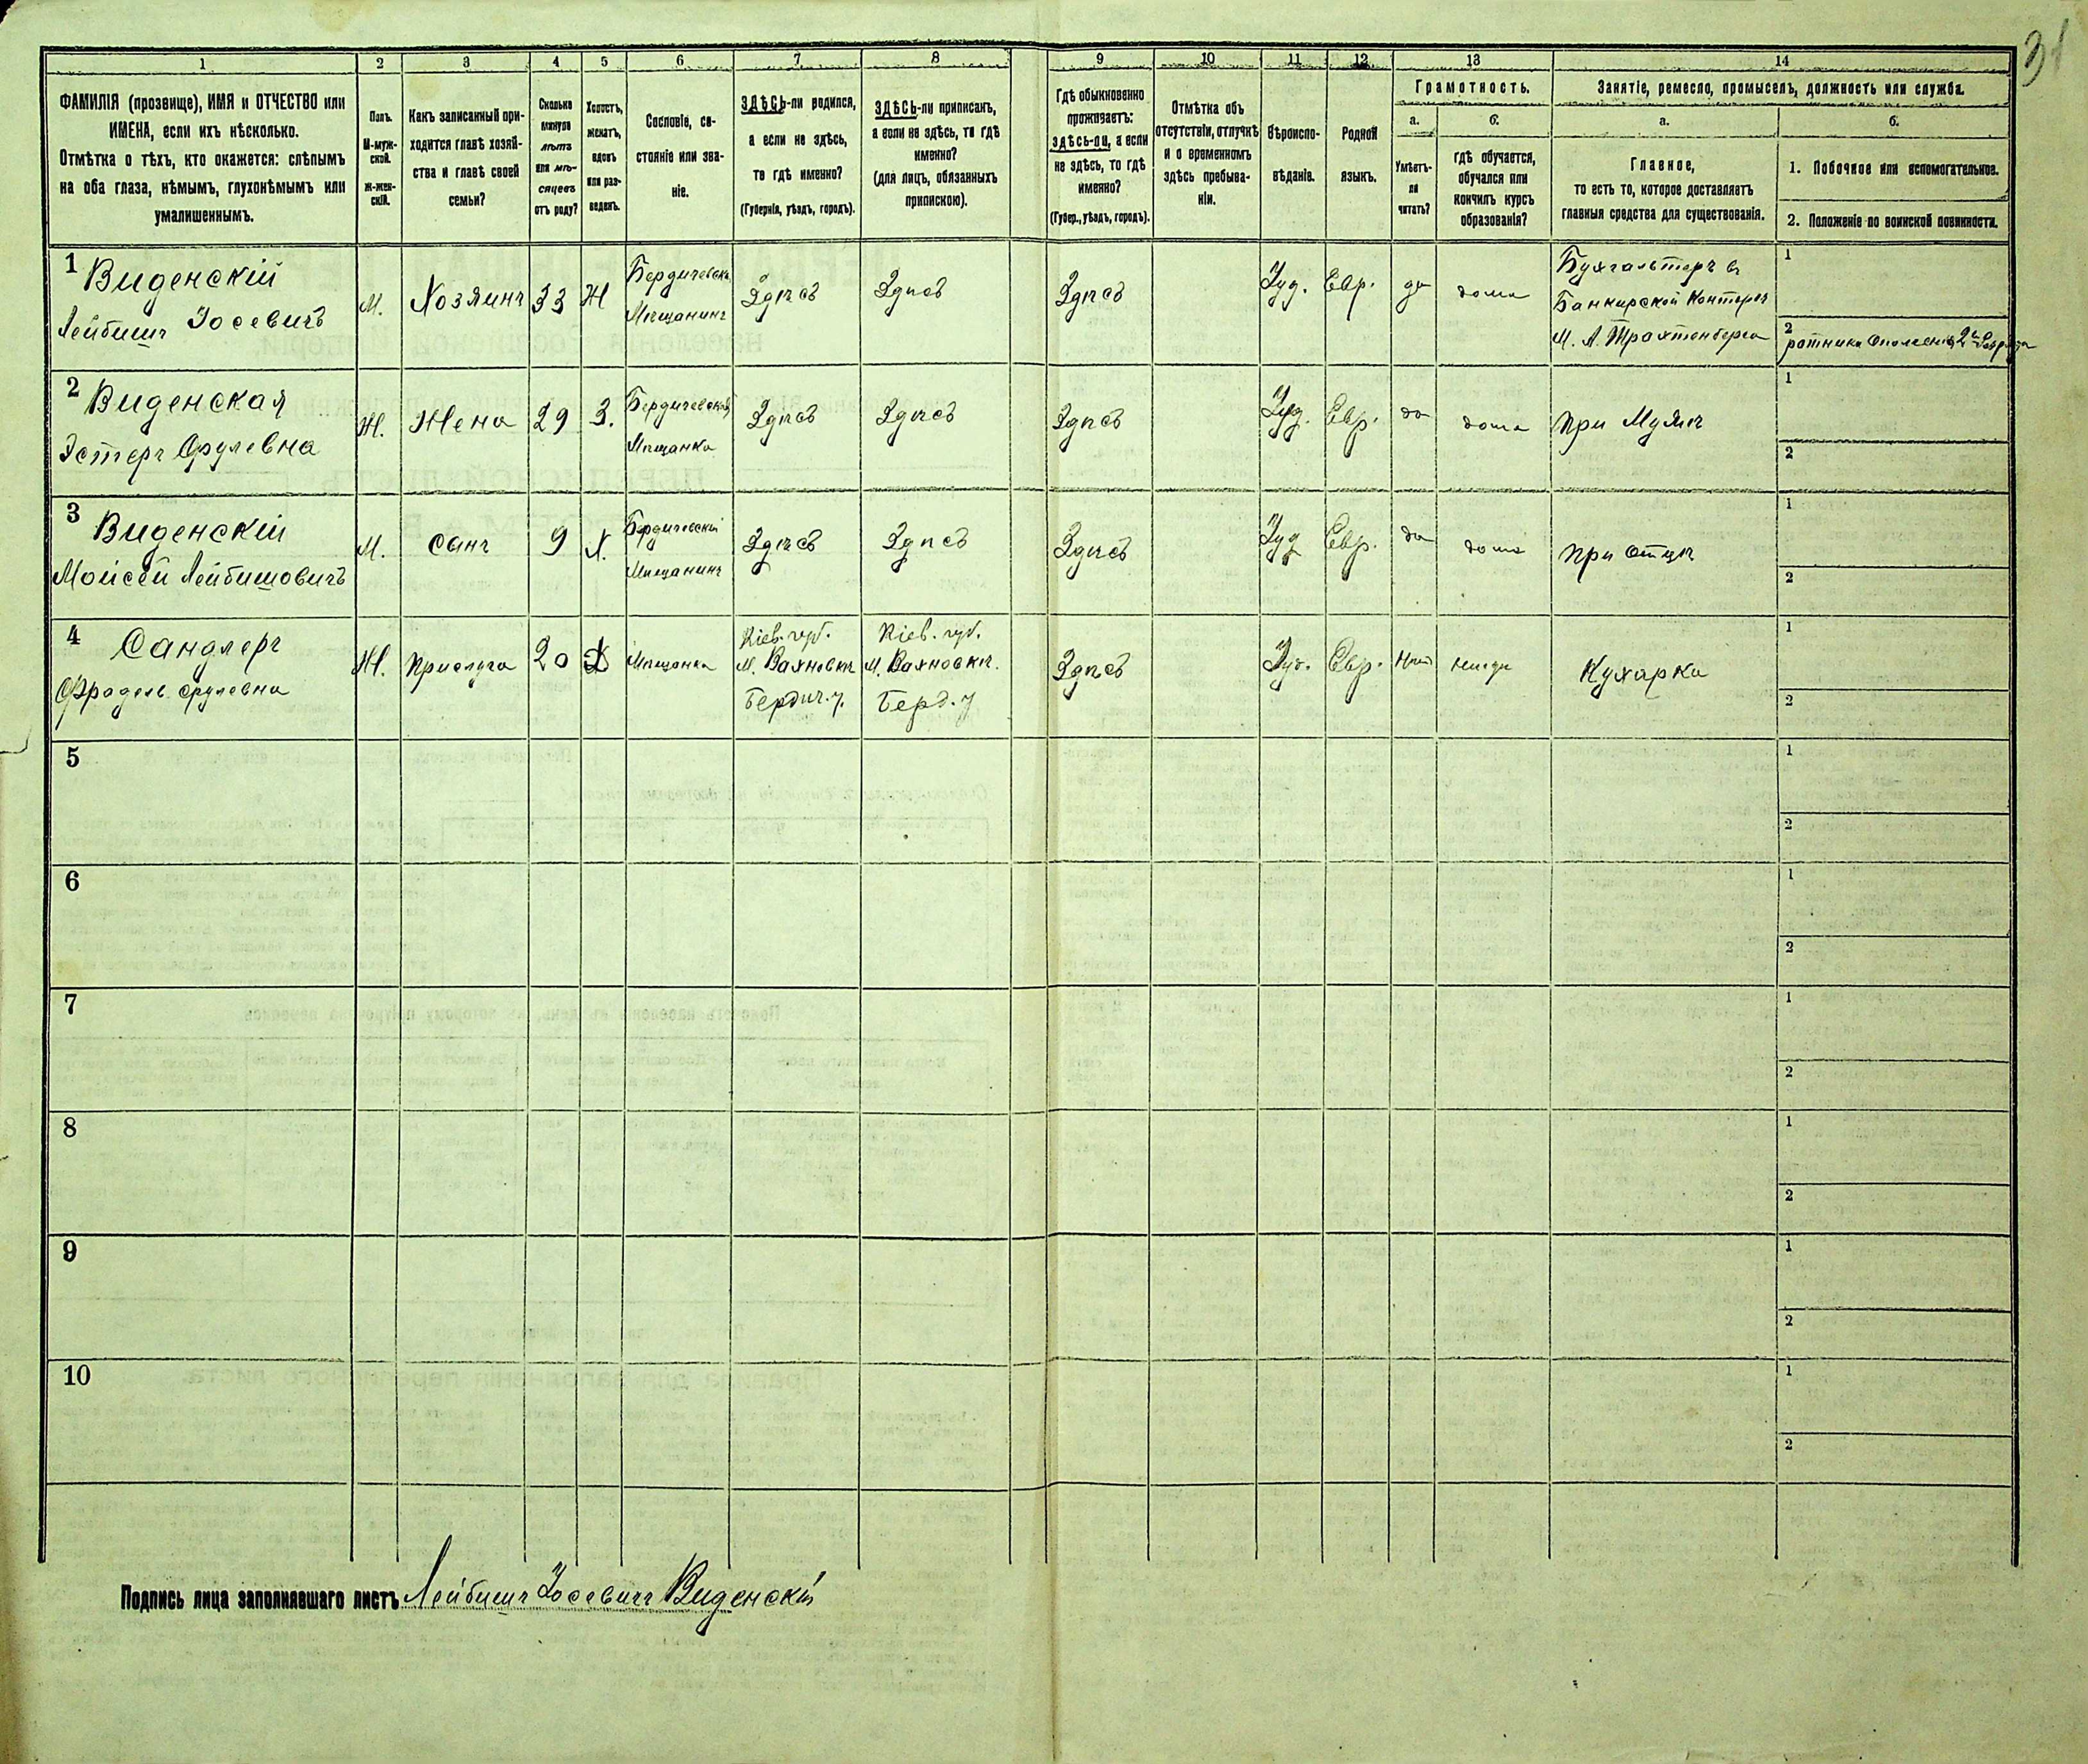 31
1 2 3 4 5 6 7 8 9 10 11 12 13 14
ФАМИЛІЯ (прозвище), ИМЯ и ОТЧЕСТВО или
ИМЕНА, если ихъ нѣсколько.
Отмѣтка о тѣхъ, кто окажется: слѣпымъ
на оба глаза, нѣмымъ, глухонѣмымъ или
умалишеннымъ.
Полъ.
М-муж-
ской.
Ж-жен-
скій.
Какъ записанный при-
ходится главѣ хозяй-
ства и главѣ своей
семьи?
Сколько
минуло
лѣтъ
или мѣ-
сяцевъ
отъ роду?
Холостъ,
женатъ,
вдовъ
или раз-
веденъ.
Сословіе, со-
стояніе или зва-
ніе.
ЗДѢСЬ-ли родился,
а если не здѣсь,
то гдѣ именно?
(Губернія, уѣздъ, городъ).
ЗДѢСЬ-ли приписанъ,
а если не здѣсь, то гдѣ
именно?
(для лицъ, обязанныхъ
припискою).
Гдѣ обыкновенно
проживаетъ:
здѣсь-ли, а если
не здѣсь, то гдѣ
именно?
(Губер., уѣздъ, городъ).
Отмѣтка объ
отсутствіи, отлучкѣ
и о временномъ
здѣсь пребыва-
ніи.
Вѣроиспо-
вѣданіе.
Родной
языкъ.
Грамотность.
а.
Умѣетъ-
ли
читать?
б.
гдѣ обучается,
обучался или
кончилъ курсъ
образованія?
Занятіе, ремесло, промыселъ, должность или служба.
а.
Главное,
то есть то, которое доставляетъ
главныя средства для существованія.
б.
1. Побочное или вспомогательное.
2. Положеніе по воинской повинности.
1 Виденскій
Лейбишъ Іосевичъ
М.
Хозяинъ
33
Ж
Бердичевск.
Мѣщанинъ
Здѣсь
Здѣсь
Здѣсь
Іуд.
Евр.
да
дома
Бухгалтеръ въ
Банкирской Конторѣ
М. А. Трахтенберга
1
2
ратникъ Ополченія 2го разряда
2 Виденская
Эстеръ Срулевна
Ж.
Жена
29
З.
Бердичевская
Мѣщанка
Здѣсь
Здѣсь
Здѣсь
Іуд.
Евр.
да
дома
при Мужѣ
1
2
3 Виденскій
Моисей Лейбишовичъ
М.
сынъ
9
Х.
Бердичевскій
Мѣщанинъ
Здѣсь
Здѣсь
Здѣсь
Іуд
Евр.
да
дома
при отцѣ
1
2
4 Сандлеръ
Фрадель Срулевна
Ж.
Прислуга
20
Мѣщанка
Кіев. губ.
М. Вахновкѣ
Бердич. у.
Кіев. губ.
М. Вахновкѣ.
Берд. у
Здѣсь
Іуд.
Евр.
Нѣтъ
нигдѣ
Кухарка
1
2
5
1
2
6
1
2
7
1
2
8
1
2
9
1
2
10
1
2
Подпись лица заполнявшаго листъ Лейбишъ Іосевичъ Виденскій